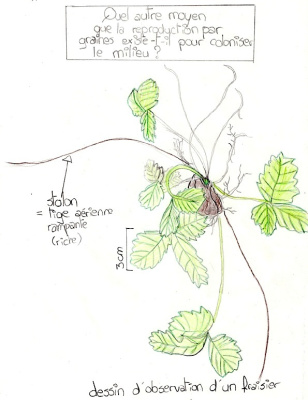 Quel autre moyen
que la reproduction par
graines existe-t-il pour coloniser
le milieu ?
stolon
= tige aérienne
rampante
(riche)
3cm
dessin d'observation d'un fraisier